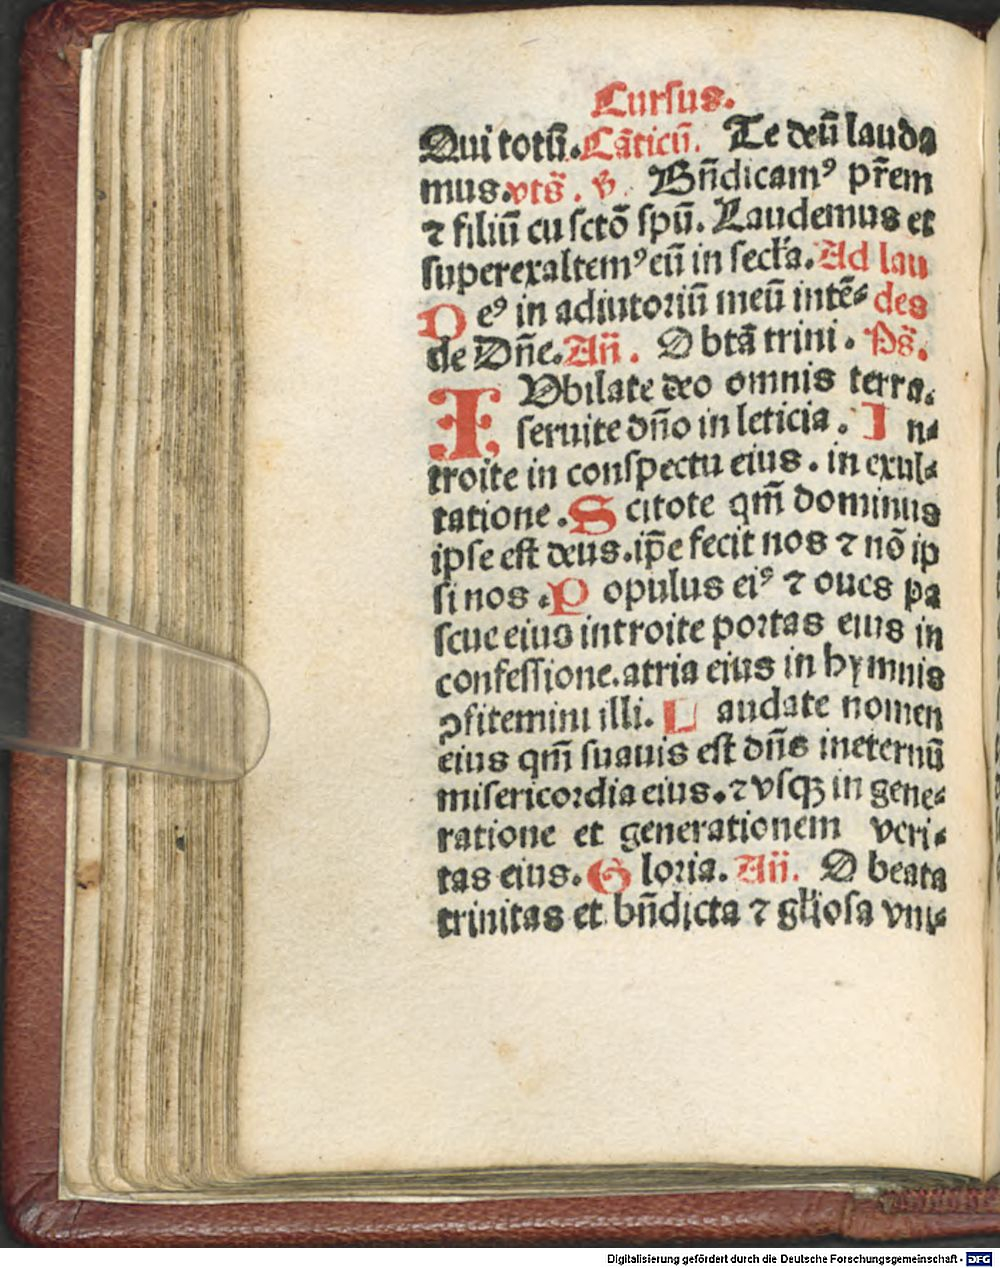 Cursus.
Qui totũ. Cãticũ. Te deũ lauda
mus. vts̃. ℣. Bñdicamꝰ pr̃em
⁊ filiũ cu sctõ spũ. Laudemus et
superexaltemꝰ eũ in secl̃a. Ad lau
Deꝰ in adiutoriũ meũ intẽ⸗ des
de Dñe. Añ. O btã trini. Ps̃.
IUbilate deo omnis terra.
seruite dño in leticia. In⸗
troite in conspectu eius. in exul⸗
tatione. Scitote qm̃ dominus
ipse est deus. ip̃e fecit nos ⁊ nõ ip
si nos. Populus eiꝰ ⁊ oues pa
scue eius introite portas eius in
confessione. atria eius in hymnis
ꝯfitemini illi. Laudate nomen
eius qm̃ suauis est dñs ineternũ
misericordia eius. ⁊ vsqꝫ in gene⸗
ratione et generationem veri⸗
tas eius. Gloria. Añ. O beata
trinitas et bñdicta ⁊ gl̃iosa vni⸗
Digitalisierung gefördert durch die Deutsche Forschungsgemeinschaft - DFG